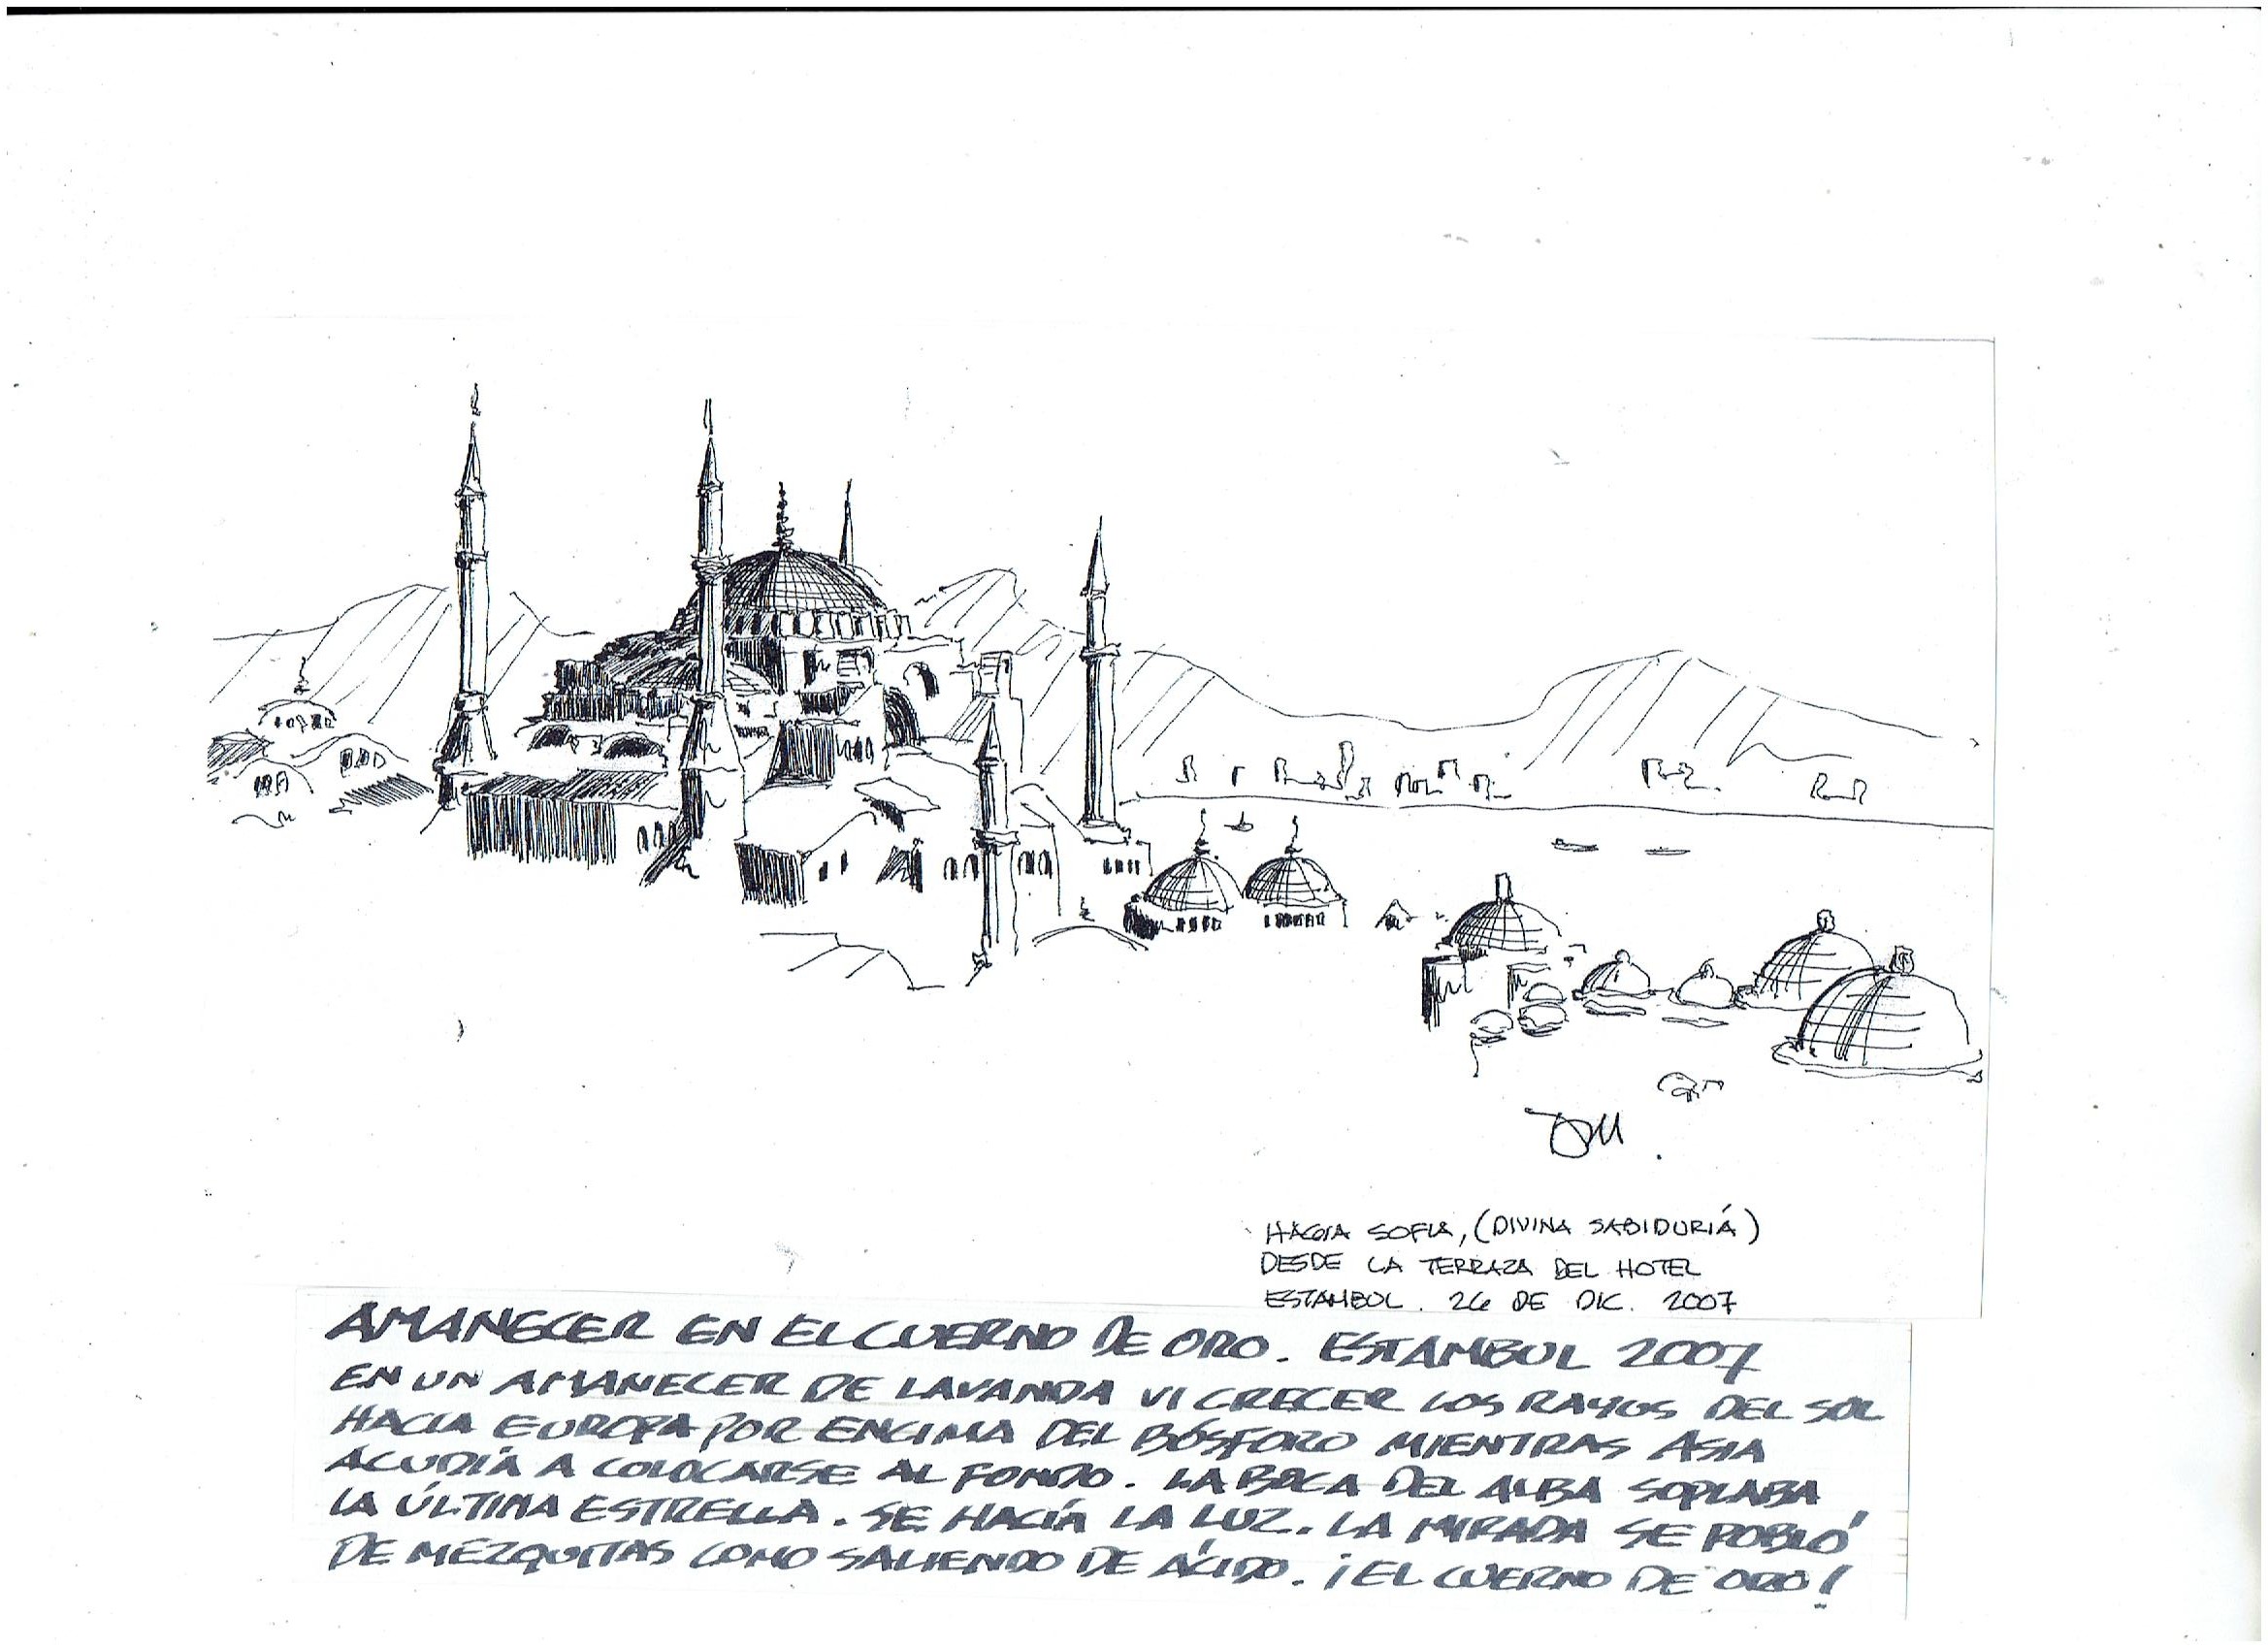 HAGIA SOFIA, (DIVINA SABIDURIÁ)
DESDE LA TERRAZA DEL HOTEL
ESTAMBUL. 26 DE DIC. 2007
AMANECER EN EL CUERNO DE ORO. ESTAMBUL 2007
EN UN AMANECER DE LAVANDA VI CRECER LOS RAYOS DEL SOL
HACIA EUROPA POR ENCIMA DEL BÓSFORO MIENTRAS ASIA
ACUDIÁ A COLOCARSE AL FONDO. LA BOCA DEL ALBA SOPLABA
LA ÚLTIMA ESTRELLA. SE HACIÁ LA LUZ. LA MIRADA SE POBLÓ
DE MEZQUITAS COMO SALIENDO DE ÁCIDO. ¡EL CUERNO DE ORO!